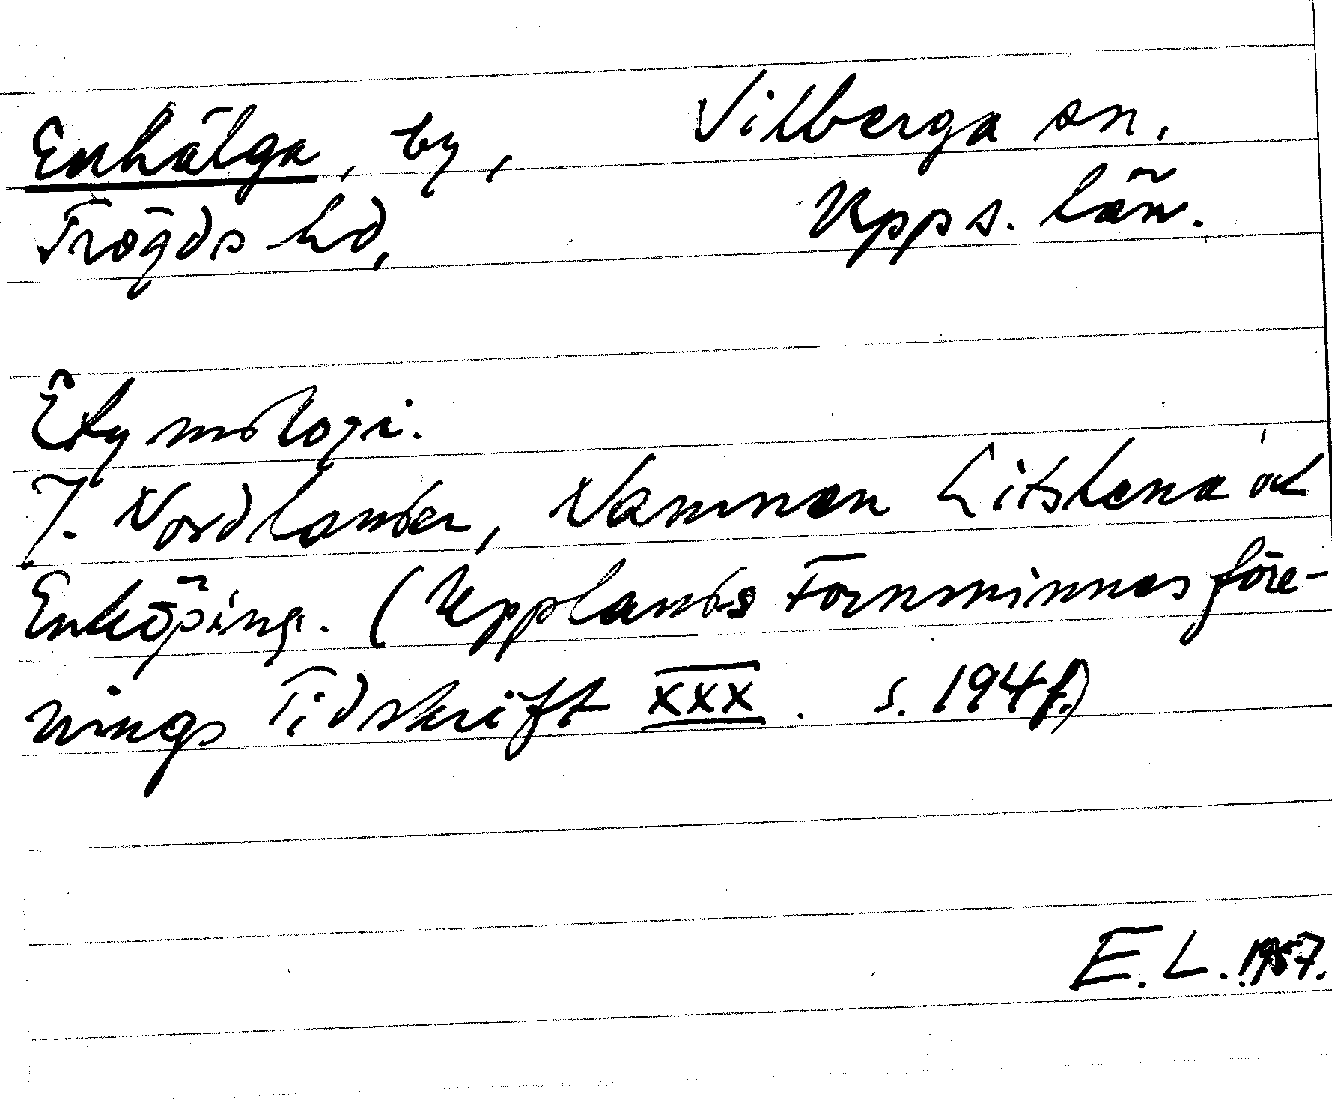 Enhälga, by, Vilberga sn.
Trögds hd, Upps. län.
Etymologi.
J. Nordlander, Namnen Litslena och
Enköping. (Upplands Fornminnesföre-
nings Tidskrift XXX. s. 194 f.)
E. L. 1957.